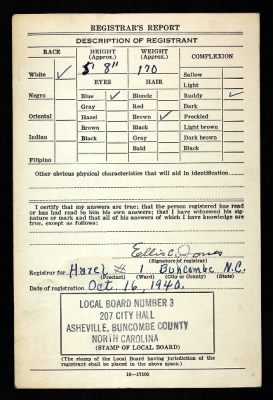 REGISTRAR'S REPORT
DESCRIPTION OF REGISTRANT
RACE HEIGHT (Approx.) WEIGHT (Approx.) COMPLEXION
White ✓ 5' 8" 170 Sallow
EYES HAIR Light
Negro Blue ✓ Blonde Ruddy ✓
Gray Red Dark
Oriental Hazel Brown ✓ Freckled
Brown Black Light brown
Indian Black Gray Dark brown
Bald Black
Filipino
Other obvious physical characteristics that will aid in identification
I certify that my answers are true; that the person registered has read
or has had read to him his own answers; that I have witnessed his sig-
nature or mark and that all of his answers of which I have knowledge are
true, except as follows:
Ellis C. Jones
(Signature of registrar)
Registrar for Hazel # 1 Buncombe N.C.
(Precinct) (Ward) (City or County) (State)
Date of registration Oct. 16, 1940.
LOCAL BOARD NUMBER 3
207 CITY HALL
ASHEVILLE, BUNCOMBE COUNTY
NORTH CAROLINA
(STAMP OF LOCAL BOARD)
(The stamp of the Local Board having jurisdiction of the
registrant shall be placed in the above space.)
16-17105